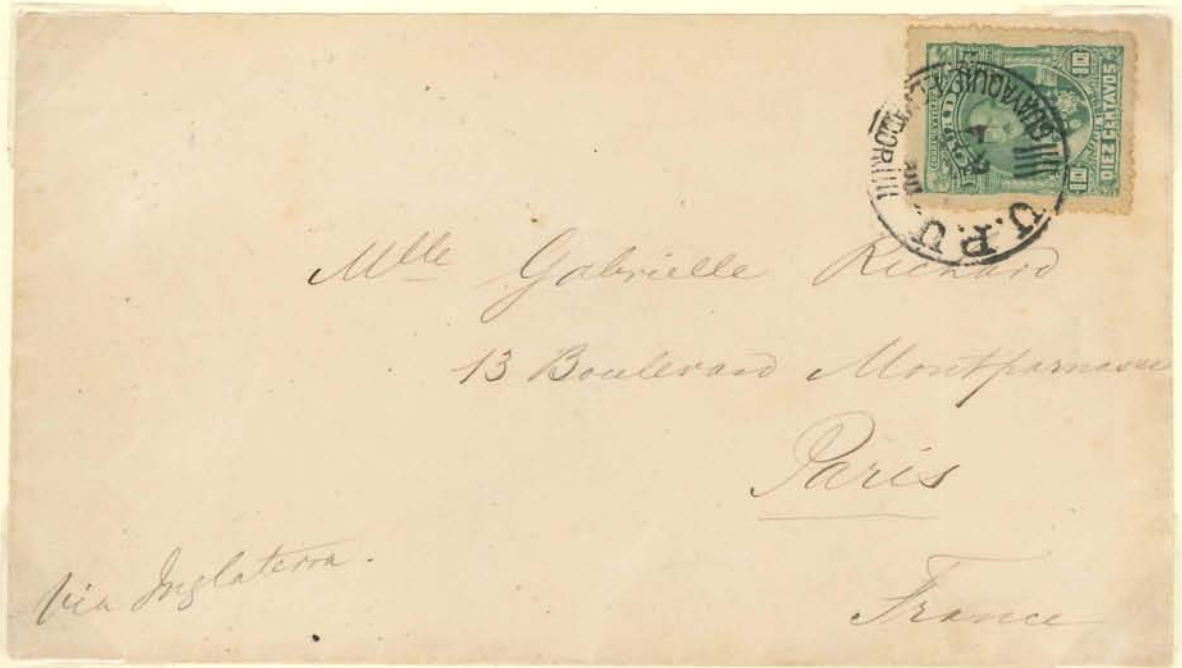 10 DIEZ CENTAVOS 10
GUAYAQUIL ECUADOR
U.P.U
Mlle Gabrielle Richard
13 Boulevard Montparnasse
Paris
Via Inglaterra.
France